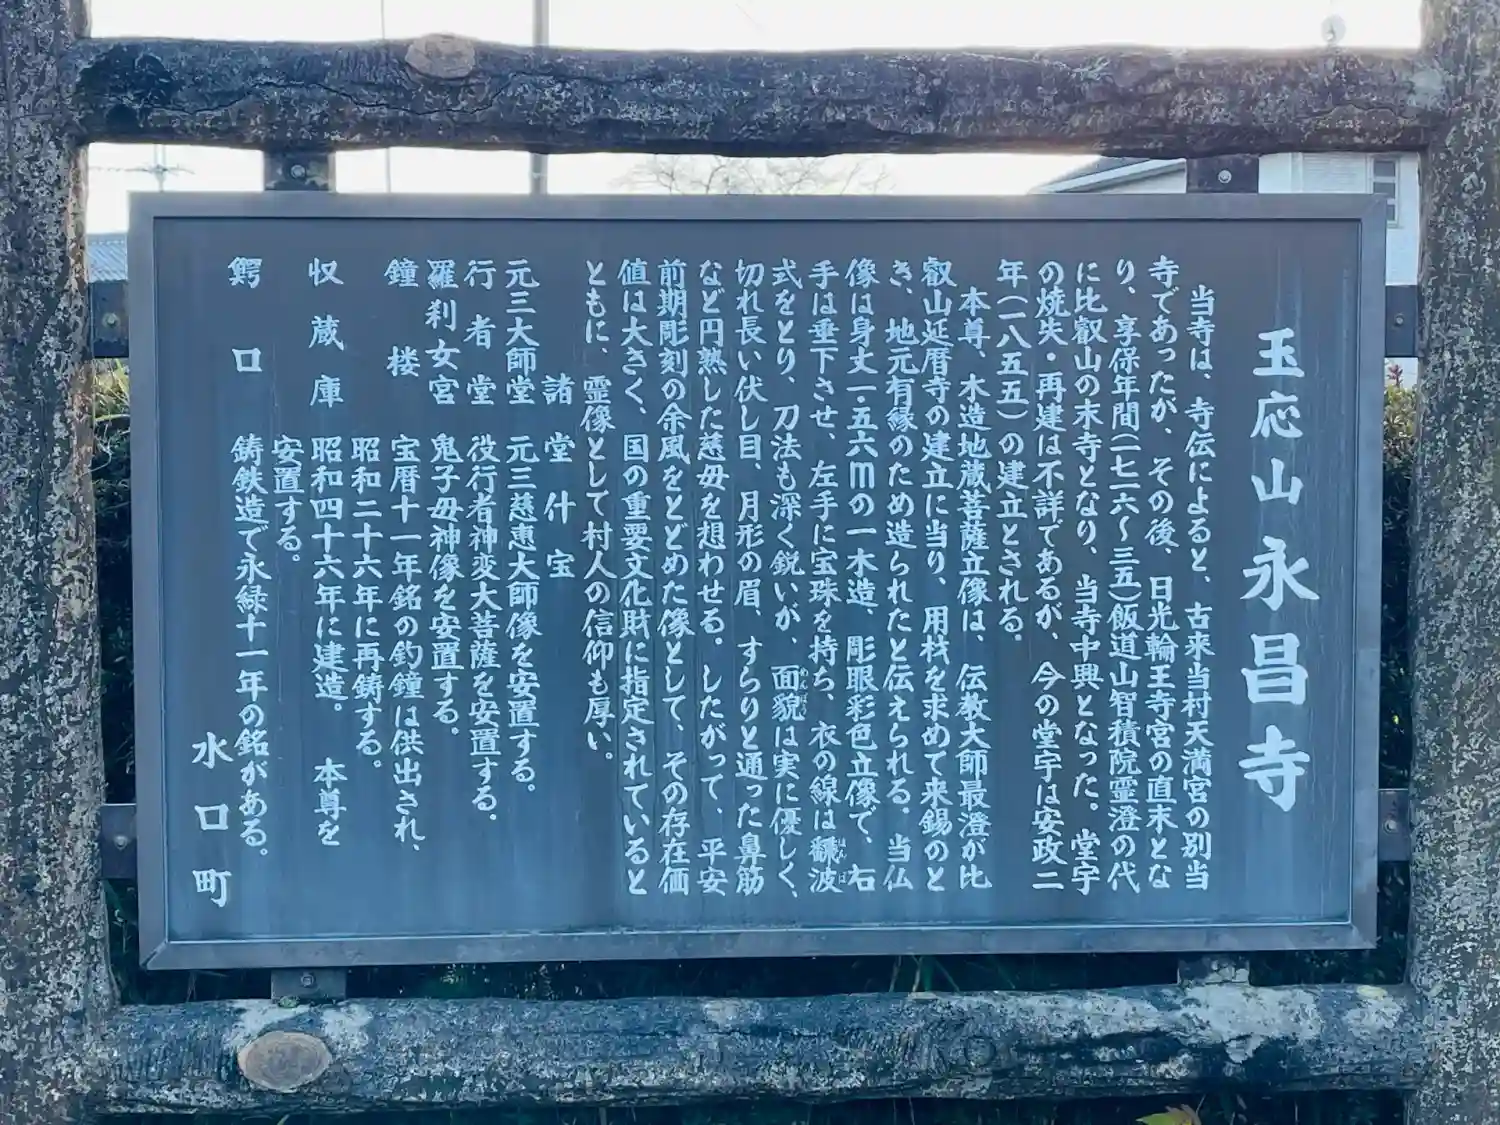 玉応山 永昌寺
当寺は、寺伝によると、古来当村天満宮の別当
寺であったが、その後、日光輪王寺宮の直末とな
り、享保年間(一七一六〜三五)飯道山智積院霊澄の代
に比叡山の末寺となり、当寺中興となった。堂宇
の焼失・再建は不詳であるが、今の堂宇は安政二
年(一八五五)の建立とされる。
本尊、木造地蔵菩薩立像は、伝教大師最澄が比
叡山延暦寺の建立に当り、用材を求めて来錫のと
き、地元有縁のため造られたと伝えられる。当仏
像は身丈一・五六mの一木造、彫眼彩色立像で、右
手は垂下させ、左手に宝珠を持ち、衣の線は飜波
式をとり、刀法も深く鋭いが、面貌は実に優しく、
切れ長い伏し目、月形の眉、すらりと通った鼻筋
など円熟した慈母を想わせる。したがって、平安
前期彫刻の余風をとどめた像として、その存在価
値は大きく、国の重要文化財に指定されていると
ともに、霊像として村人の信仰も厚い。
諸堂什宝
元三大師堂 元三慈恵大師像を安置する。
行者堂 役行者神変大菩薩を安置する。
羅刹女宮 鬼子母神像を安置する。
鐘楼 宝暦十一年銘の釣鐘は供出され、
昭和二十六年に再鋳する。
収蔵庫 昭和四十六年に建造。 本尊を
安置する。
鰐口 鋳鉄造で永緑十一年の銘がある。
水口町